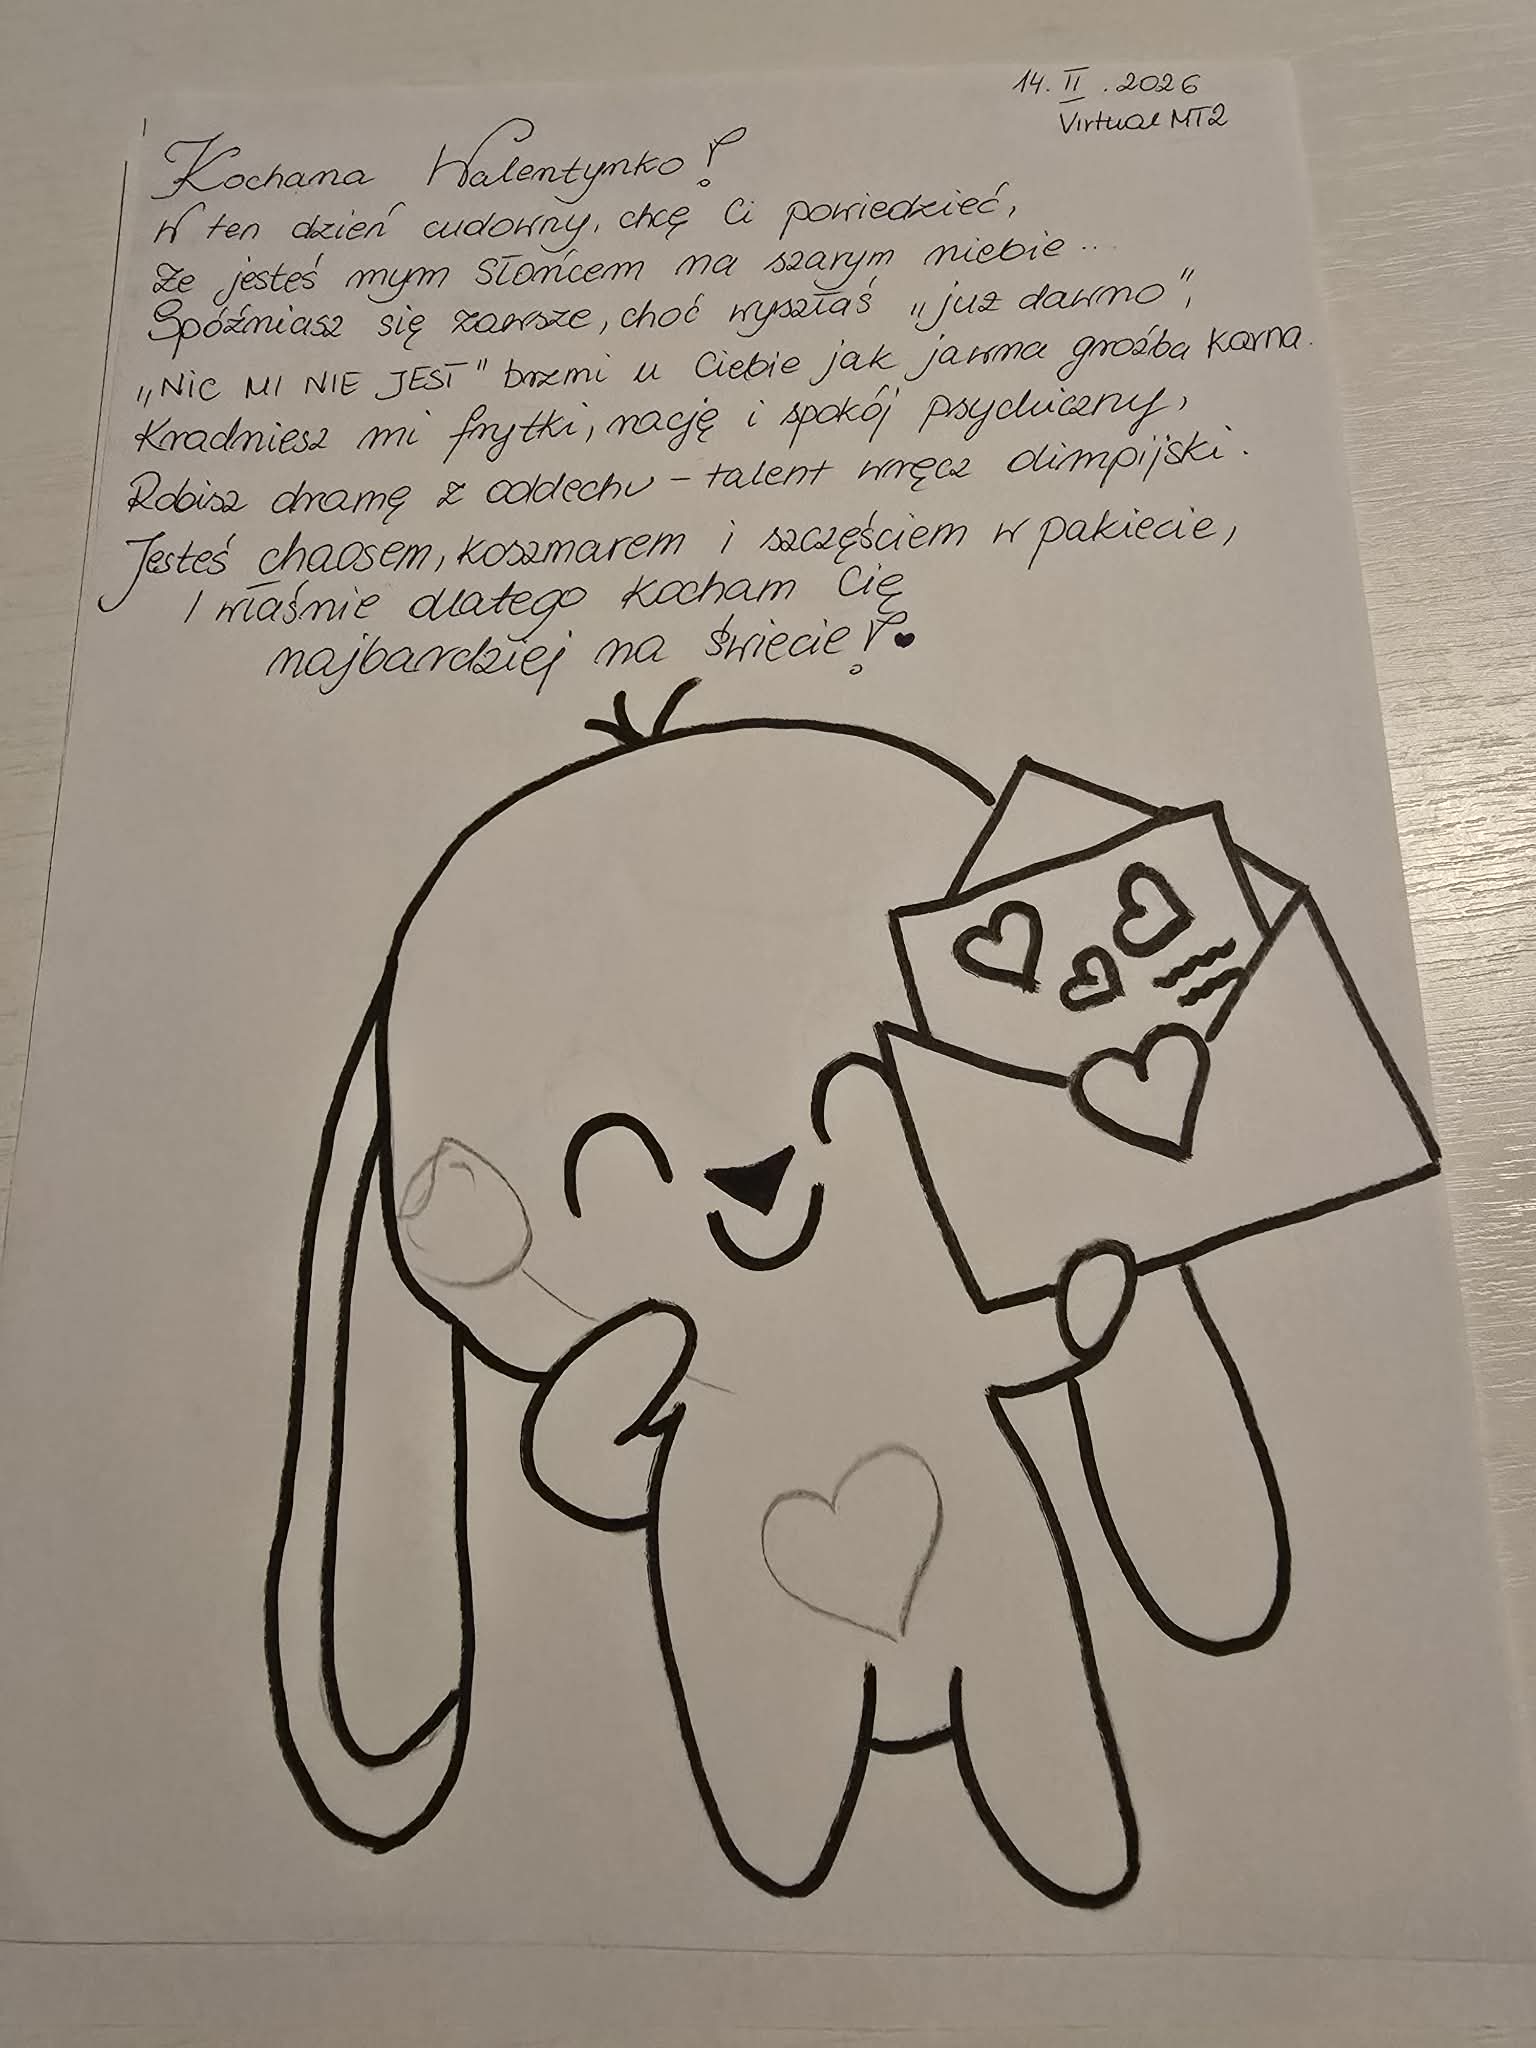 14. II. 2026
Virtual MT2
Kochana Walentynko!
W ten dzień cudowny, chcę Ci powiedzieć,
że jesteś mym Słońcem na szarym niebie...
Spóźniasz się zawsze, choć wyszłaś „już dawno”,
„NIC MI NIE JEST” brzmi u Ciebie jak jawna groźba karna.
Kradniesz mi frytki, rację i spokój psychiczny,
Robisz dramę z oddechu – talent wręcz olimpijski.
Jesteś chaosem, koszmarem i szczęściem w pakiecie,
I właśnie dlatego kocham Cię
najbardziej na świecie! ♥